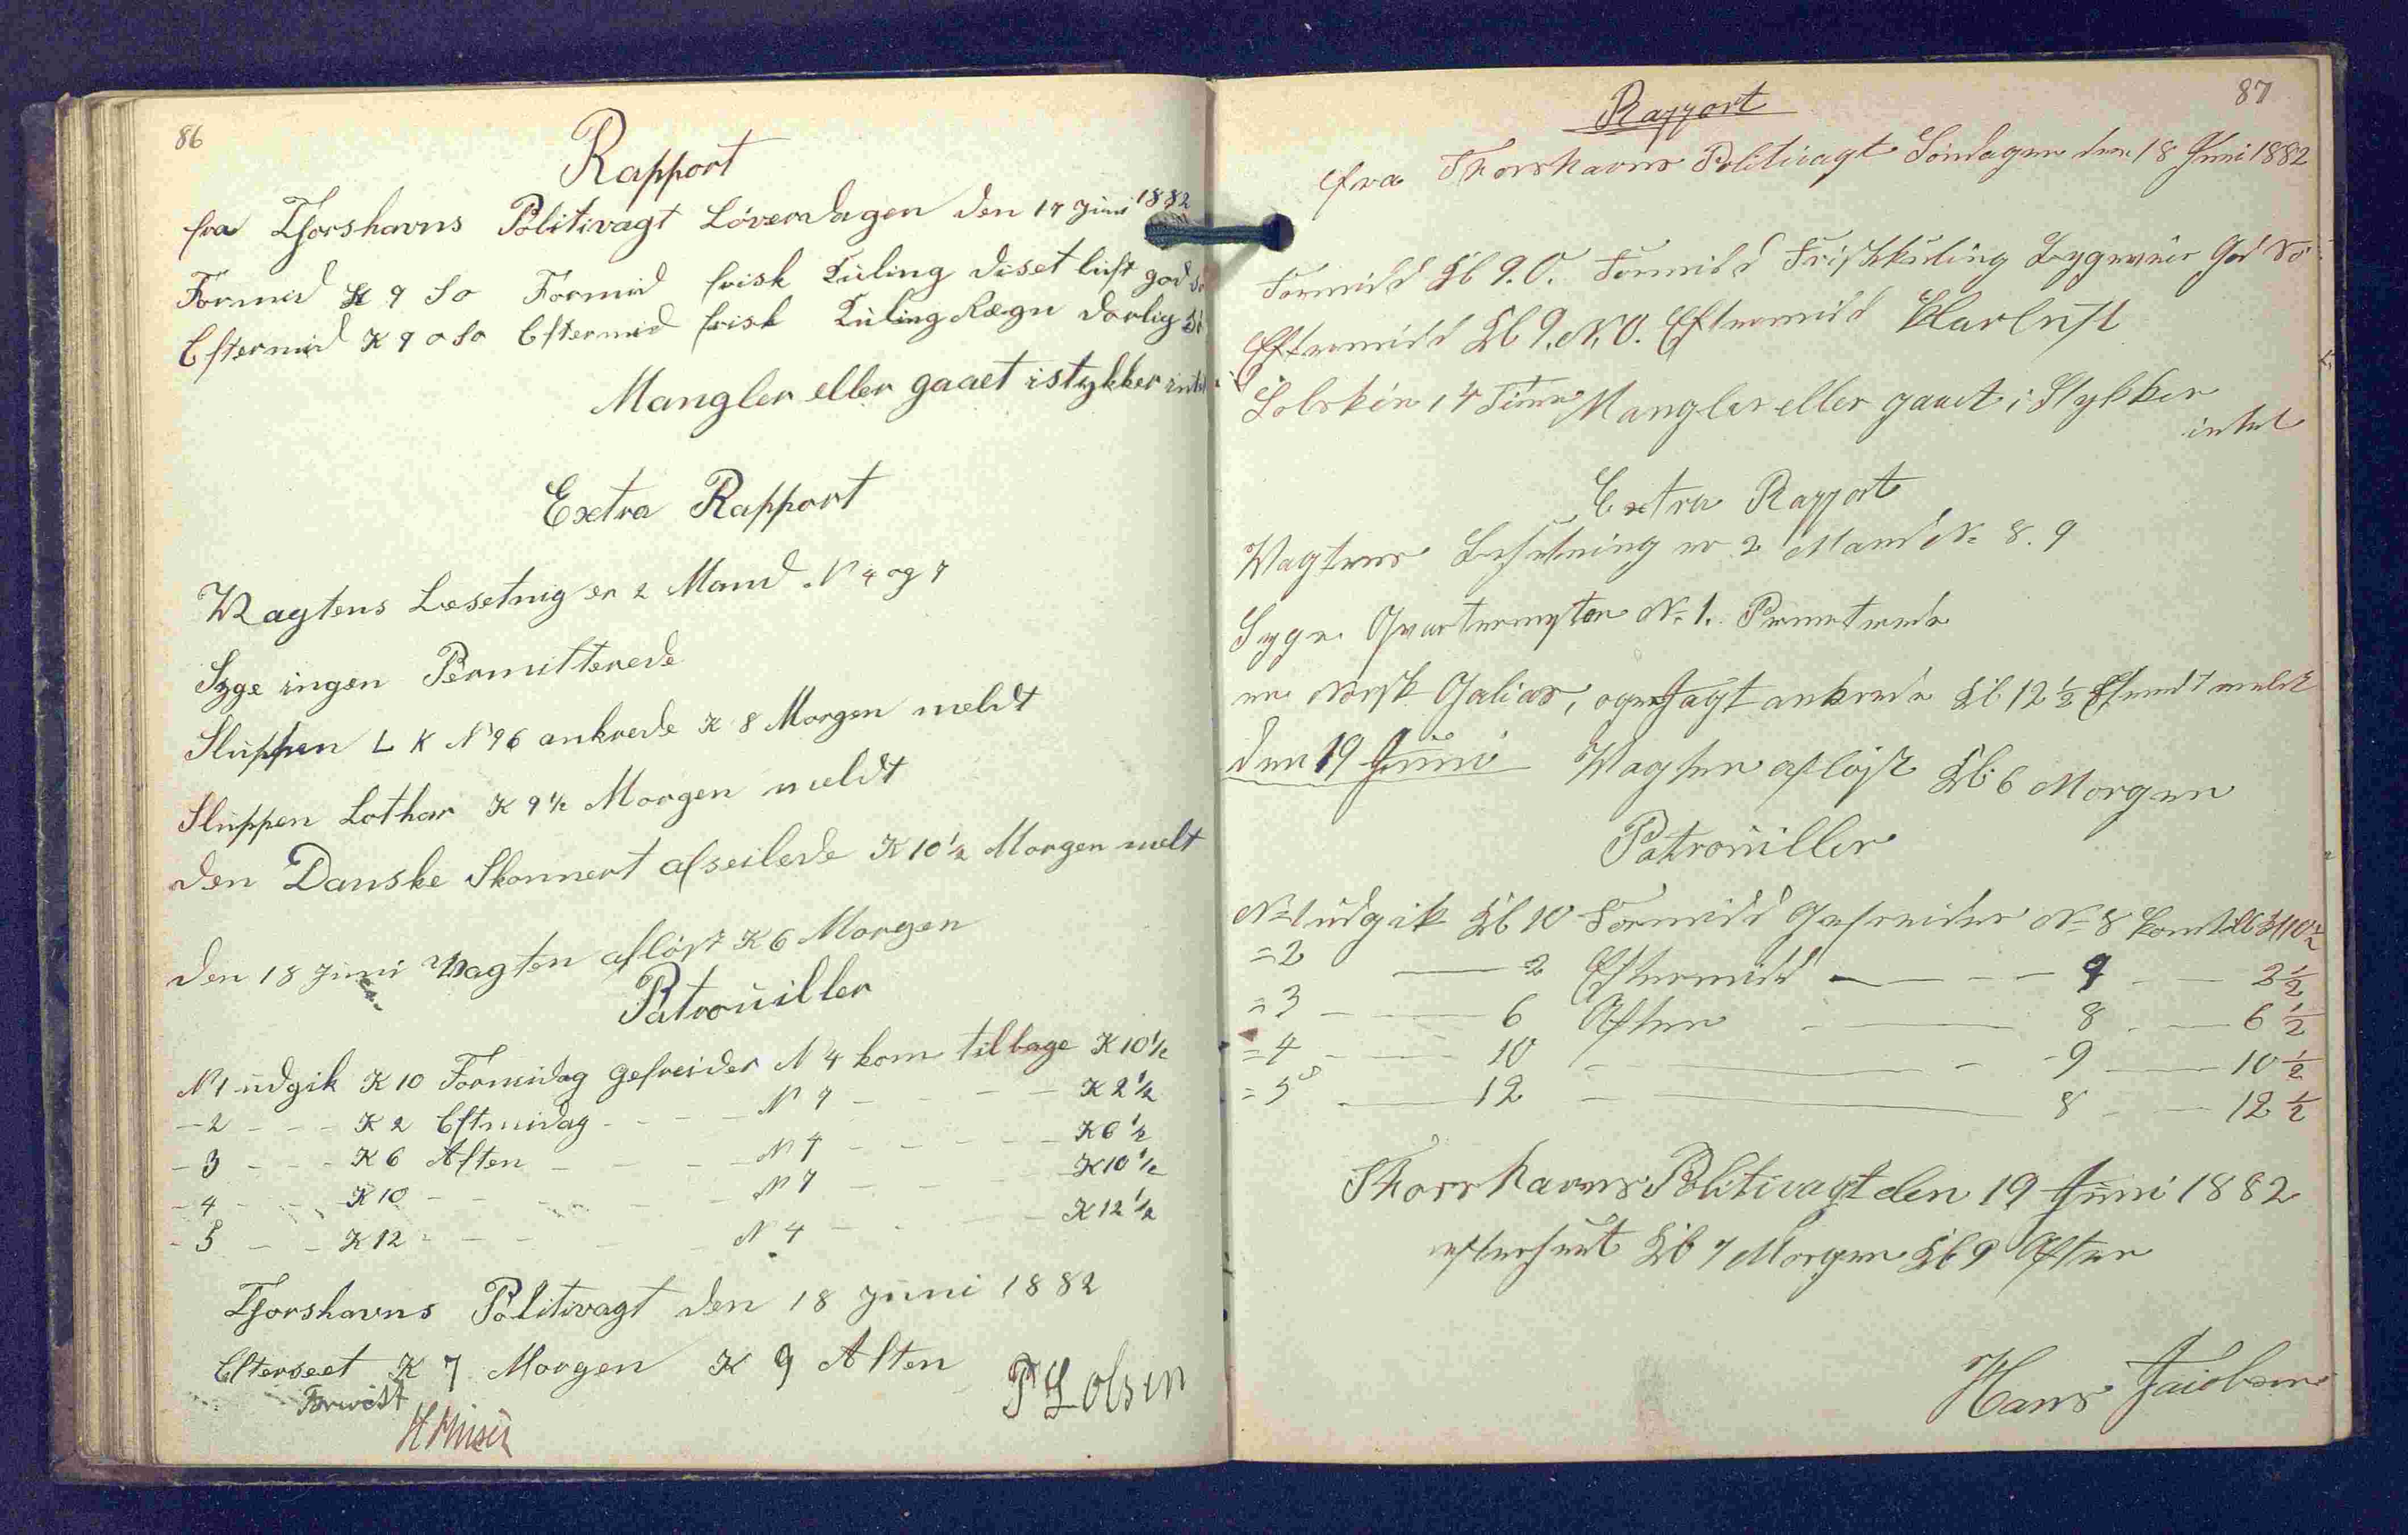 86
Rapport
fra Thorshavns Politivagt Löverdagen den 17 Juni 1882
Formid K 9 So Formid frisk Kuling diset luft god
Eftermid K 9 o So Eftermid frisk Kuling Rægn dorlig
Mangler eller gaaet istykker intet
Extra Rapport
Vagtens Besetnig er 2 Mand N 4 og 7
Syge ingen Permitterede
Sluppen L K N 96 ankrede K 8 Morgen meldt
Sluppen Lothar K 9½ Morgen meldt
den Danske Skonnert afseilede K 10½ Morgen melt
den 18 Juni Vagten aflöst K 6 Morgen
Patrouiller
N 1 udgik K 10 Formidag gefreider N 4 kom tilbage K 10½
- 2 - - - K 2 Eftmidag - - - N 7 - - - - K 2½
- 3 - - - K 6 Aften - - - N 4 - - - - K 6½
- 4 - - - K 10 - - - - N 7 - - - - K 10½
- 5 - - K 12 - - - - N 4 - - - - K 12½
Thorshavns Politivagt den 18 Juni 1882
Efterseet K 7 Morgen K 9 Aften
Forevist
87
Rapport
fra Thorshavns Politivagt Söndagen den 18 Juni 1882
Formidd Kl 9. O. Formidd Frisk Kuling Bygeveir God
Eftermidd Kl 9. N. O. Eftermidd Klarluft
Solskin 14 Timer Mangler eller gaaet i Stykker
intet
Extra Rapport
Vagtens Besetning er 2 Mand No 8. 9
Syge Qvartermester No 1. Permeterede
en Norsk Galias, og en Jagt ankrede Kl 12½ meldt
den 19 Juni Vagten aflöst Kl 6 Morgen
Patrouiller
No 1 udgik Kl 10 Formidd Gefreider No 8 10½
= 2 — 2 Eftermidd — - - 9 - — 2½
= 3 - — 6 Aften - — 8 - — 6½
= 4 - — 10 - — - 9 — 10½
= 5 — 12 - — 8 - — 12½
Thorshavns Politivagt den 19 Juni 1882
efterseet Kl 7 Morgen Kl 9 Aften
Hans Jacobsen